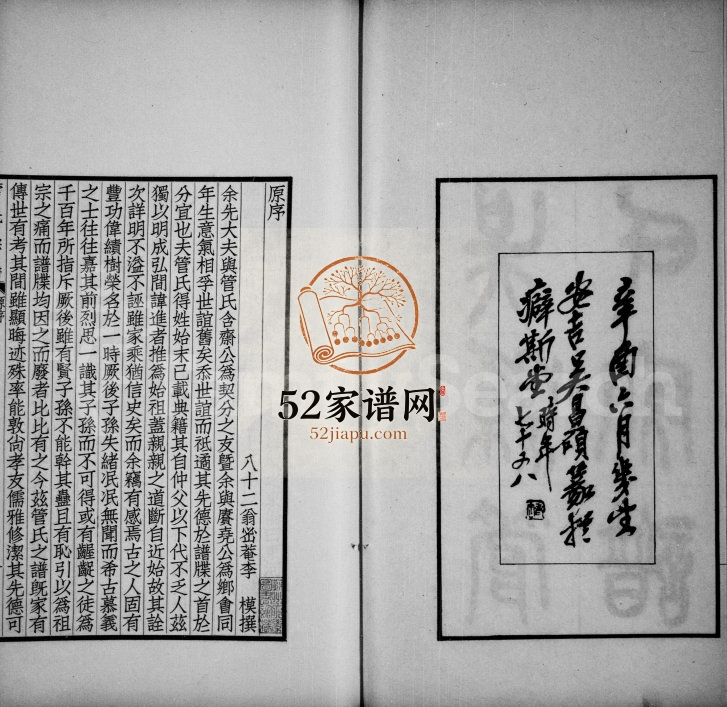 辛酉六月幾望
安吉吳昌碩篆於
癖斯堂時年
七十又八
原序
八十二翁密菴李 模撰
余先大夫與管氏含齋公爲契分之友暨余與賡堯公爲鄉會同
年生意氣相孚世誼舊矣忝世誼而祗遹其先德於譜牒之首於
分宜也夫管氏得姓始末已載典籍其自仲父以下代不乏人玆
獨以明成弘間諱進者推爲始祖蓋親親之道斷自近始故其詮
次詳明不溢不誣雖家乘猶信史矣而余竊有感焉古之人固有
豐功偉績樹榮名於一時厥後子孫失緒泯泯無聞而希古慕義
之士往往嘉其前烈思一識其子孫而不可得或有齷齪之徒爲
千百年所指斥厥後雖有賢子孫不能幹其蠱且有恥引以爲祖
宗之痛而譜牒均因之而廢者比比有之今玆管氏之譜旣家有
傳世有考其間雖顯晦迹殊率能敦尙孝友儒雅修潔其先德可
52家谱网
52jiapu.com